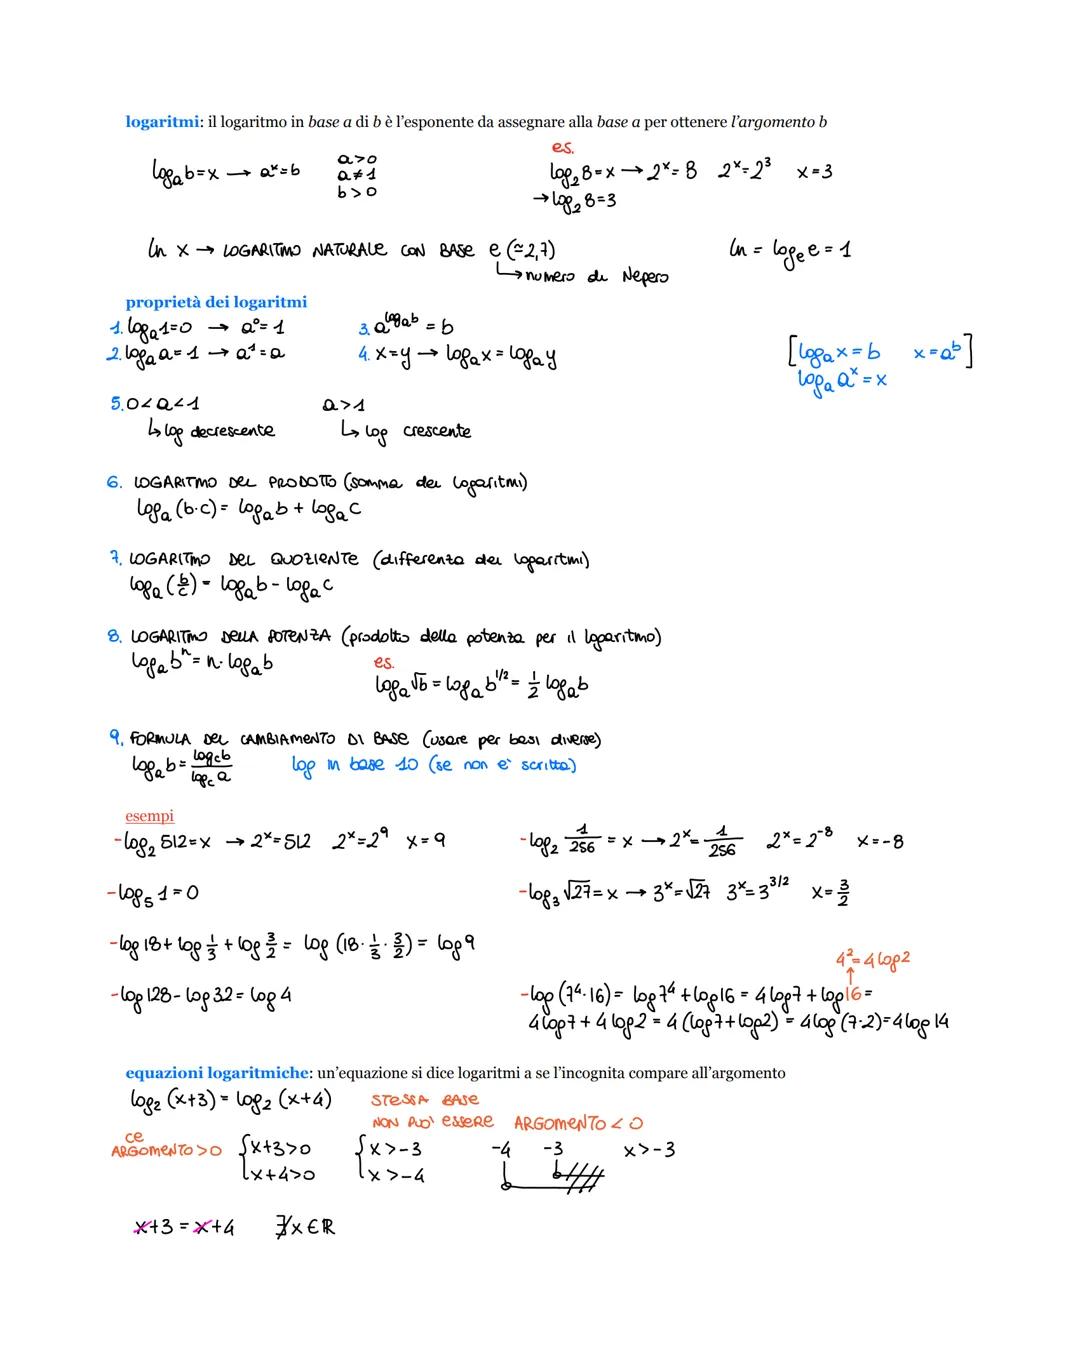 logaritmi: il logaritmo in base a di b è l'esponente da assegnare alla base a per ottenere l'argomento b
es.
logₐb=x → aˣ=b a>0 a≠1 b>0
log₂8=x → 2ˣ=8 2ˣ=2³ x=3
→ log₂8=3
ln x → LOGARITMO NATURALE CON BASE e (≃2,7)
↳ numero di Nepero
ln = logₑe = 1
proprietà dei logaritmi
1. logₐ1=0 → a⁰=1
2. logₐa=1 → a¹=a
3. a^(logₐb) = b
4. x=y → logₐx = logₐy
[logₐx=b x=aᵇ]
logₐaˣ=x
5. 0<a<1 a>1
↳ log decrescente ↳ log crescente
6. LOGARITMO DEL PRODOTTO (somma dei logaritmi)
logₐ(b·c) = logₐb + logₐc
7. LOGARITMO DEL QUOZIENTE (differenza dei logaritmi)
logₐ(b/c) = logₐb - logₐc
8. LOGARITMO DELLA POTENZA (prodotto della potenza per il logaritmo)
logₐbⁿ = n·logₐb
es.
logₐ√b = logₐb^(1/2) = 1/2 logₐb
9. FORMULA DEL CAMBIAMENTO DI BASE (usare per basi diverse)
logₐb = log_c b / log_c a log in base 10 (se non e' scritta)
esempi
-log₂512=x → 2ˣ=512 2ˣ=2⁹ x=9
-log₂ 1/256 = x → 2ˣ= 1/256 2ˣ=2⁻⁸ x=-8
-log₅1=0
-log₃√27=x → 3ˣ=√27 3ˣ=3^(3/2) x=3/2
-log18+log 1/3 + log 3/2 = log (18·1/3·3/2) = log9
4²=4log2
↑
-log128-log32=log4
-log(7⁴·16) = log7⁴+log16 = 4log7+log16=
4log7+4log2 = 4(log7+log2) = 4log(7·2)=4log14
equazioni logaritmiche: un'equazione si dice logaritmi a se l'incognita compare all'argomento
log₂(x+3) = log₂(x+4) STESSA BASE
NON PUO' ESSERE ARGOMENTO<0
CE
ARGOMENTO>0 {x+3>0 {x>-3 -4 -3 x>-3
x+4>0 x>-4
x+3=x+4 ∄x∈ℝ